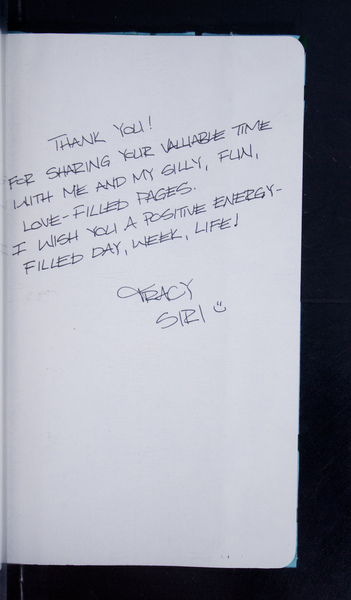 THANK YOU!
FOR SHARING YOUR VALUABLE TIME
WITH ME AND MY SILLY, FUN,
LOVE-FILLED PAGES.
I WISH YOU A POSITIVE ENERGY-
FILLED DAY, WEEK, LIFE!
TRACY
SIRI